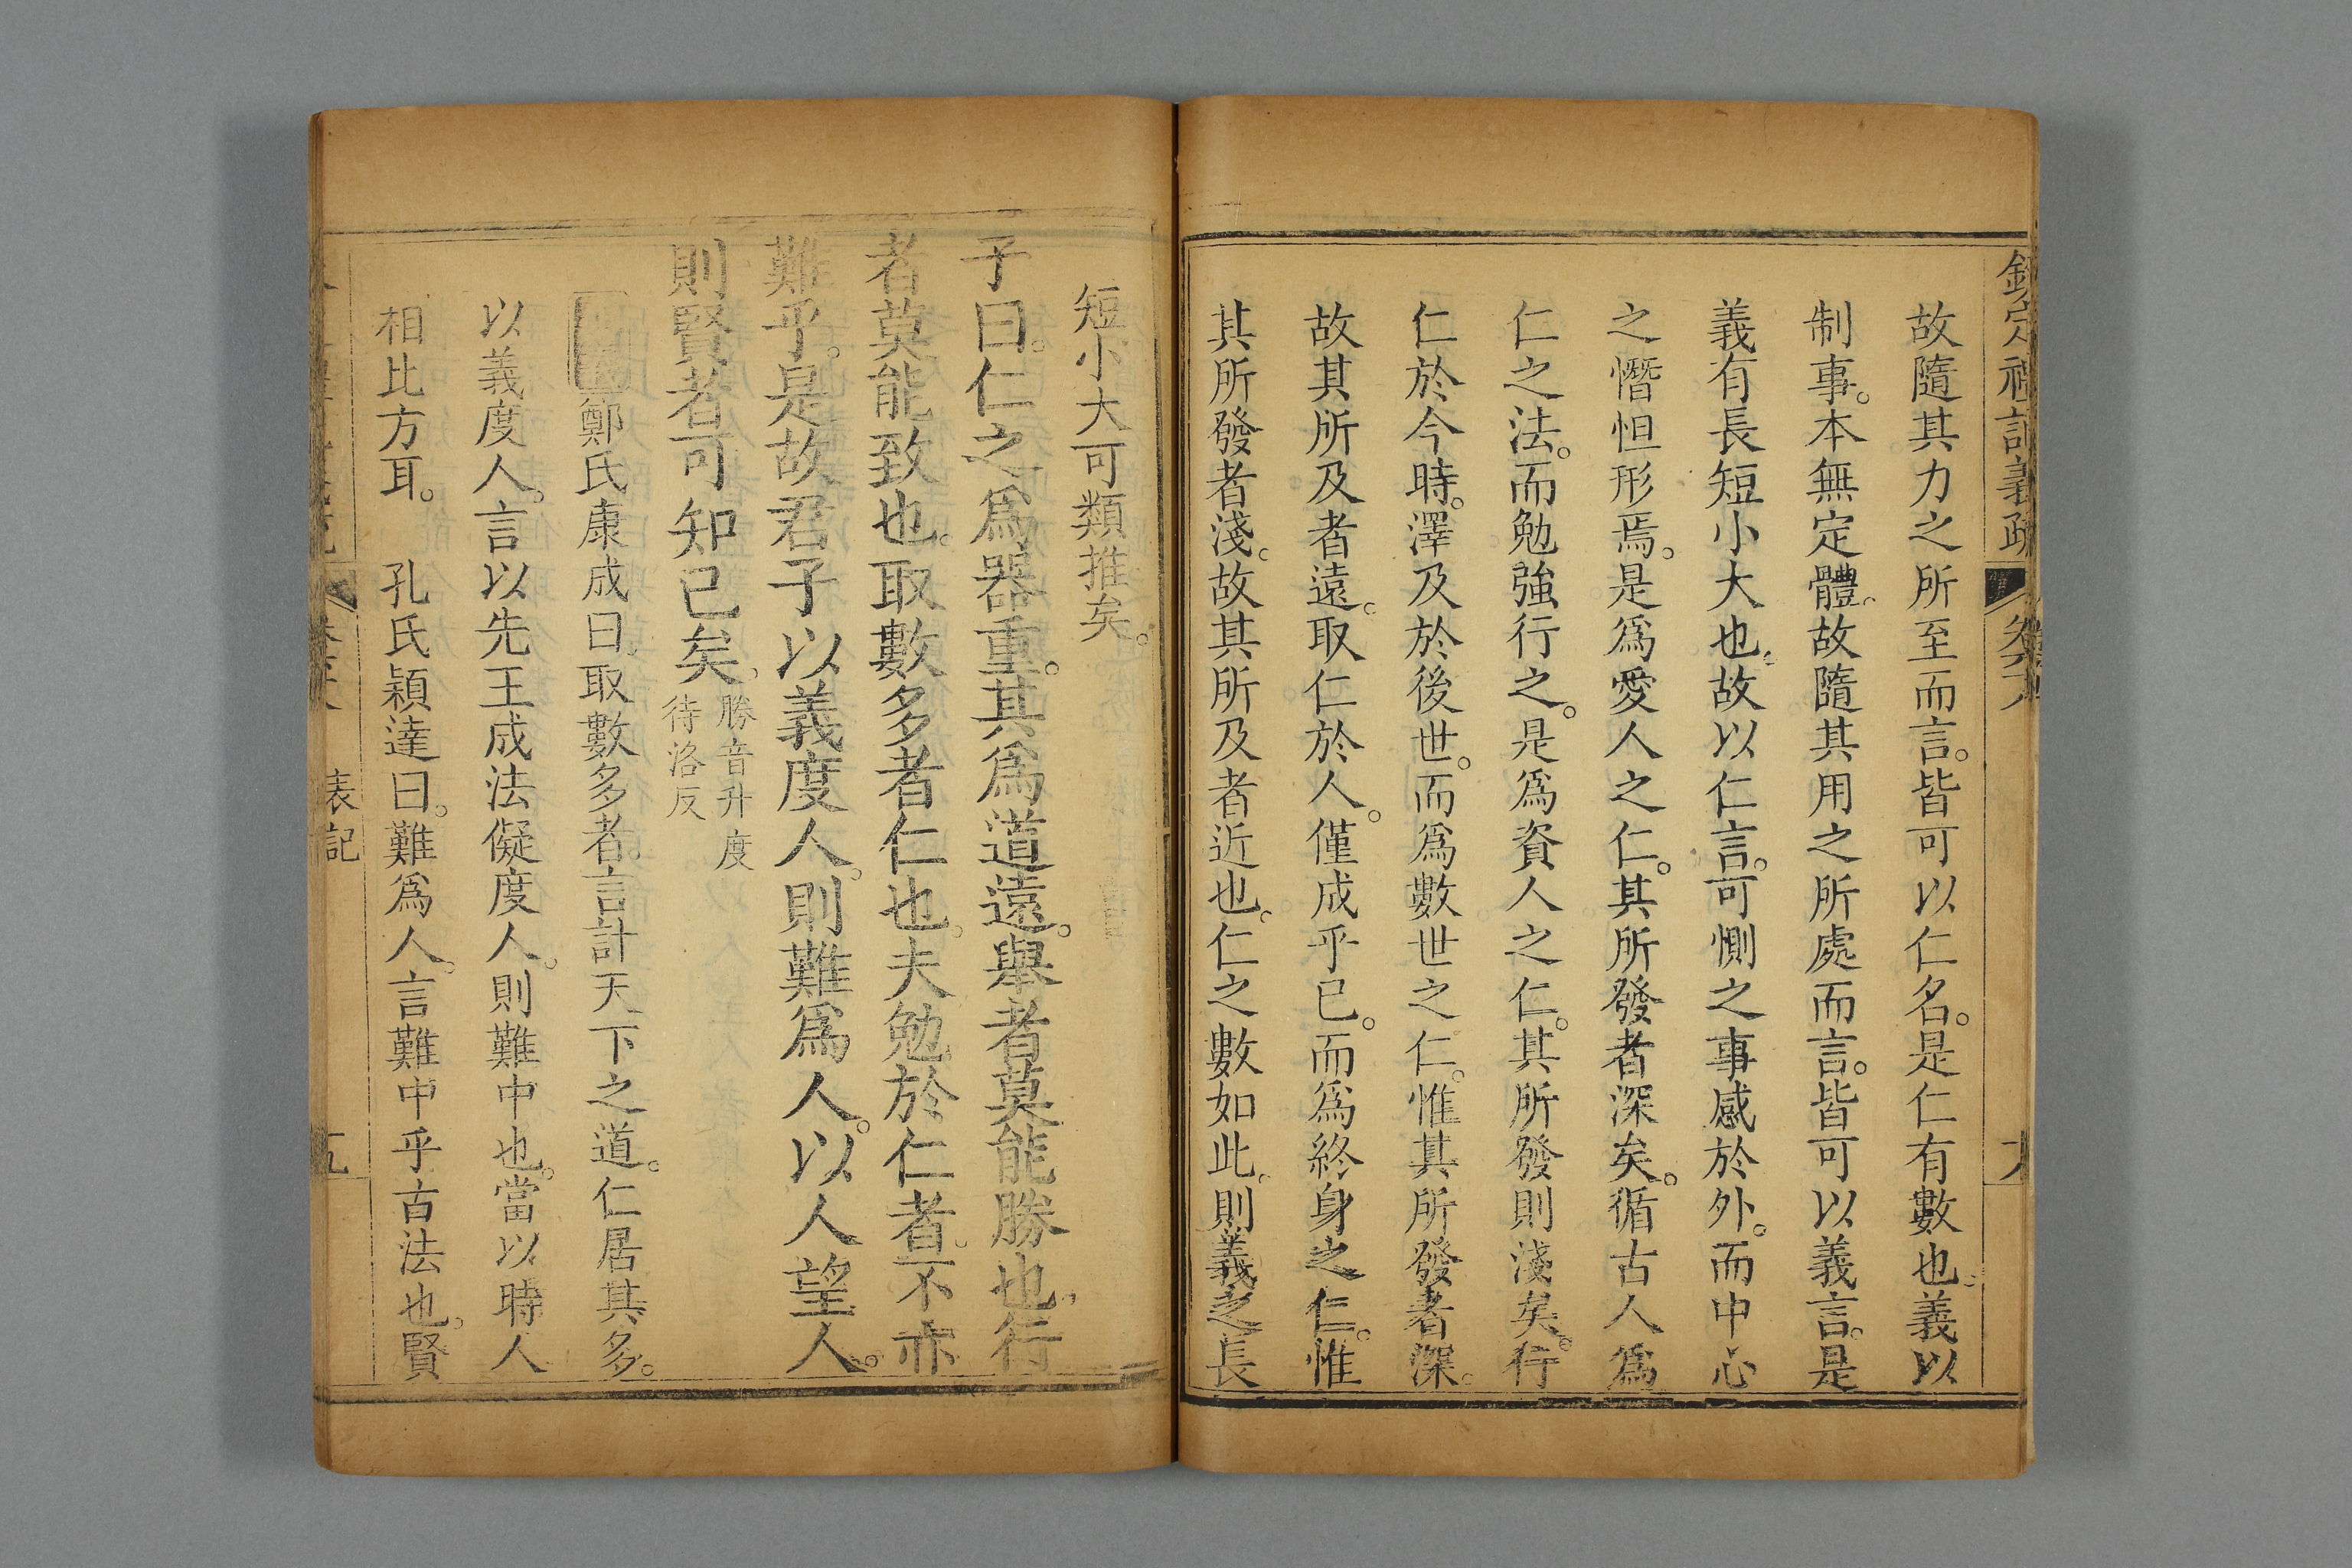 欽定禮記義疏
故隨其力之所至而言。皆可以仁名。是仁有數也。義以
制事。本無定體。故隨其用之所處而言。皆可以義言。是
義有長短小大也。故以仁言。可惻之事感於外。而中心
之憯怛形焉。是爲愛人之仁。其所發者深矣。循古人爲
仁之法。而勉強行之。是爲資人之仁。其所發則淺矣。行
仁於今時。澤及於後世。而爲數世之仁。惟其所發者深。
故其所及者遠。取仁於人。僅成乎已。而爲終身之仁。惟
其所發者淺。故其所及者近也。仁之數如此。則義之長
短小大可類推矣。
子曰。仁之爲器重。其爲道遠。舉者莫能勝也。行
者莫能致也。取數多者仁也。夫勉於仁者。不亦
難乎。是故君子以義度人。則難爲人。以人望人。
則賢者可知已矣。勝音升度
待洛反
鄭氏康成曰。取數多者。言計天下之道。仁居其多。
以義度人。言以先王成法儗度人。則難中也。當以時人
相比方耳。 孔氏穎達曰。難爲人。言難中乎古法也。賢
表記